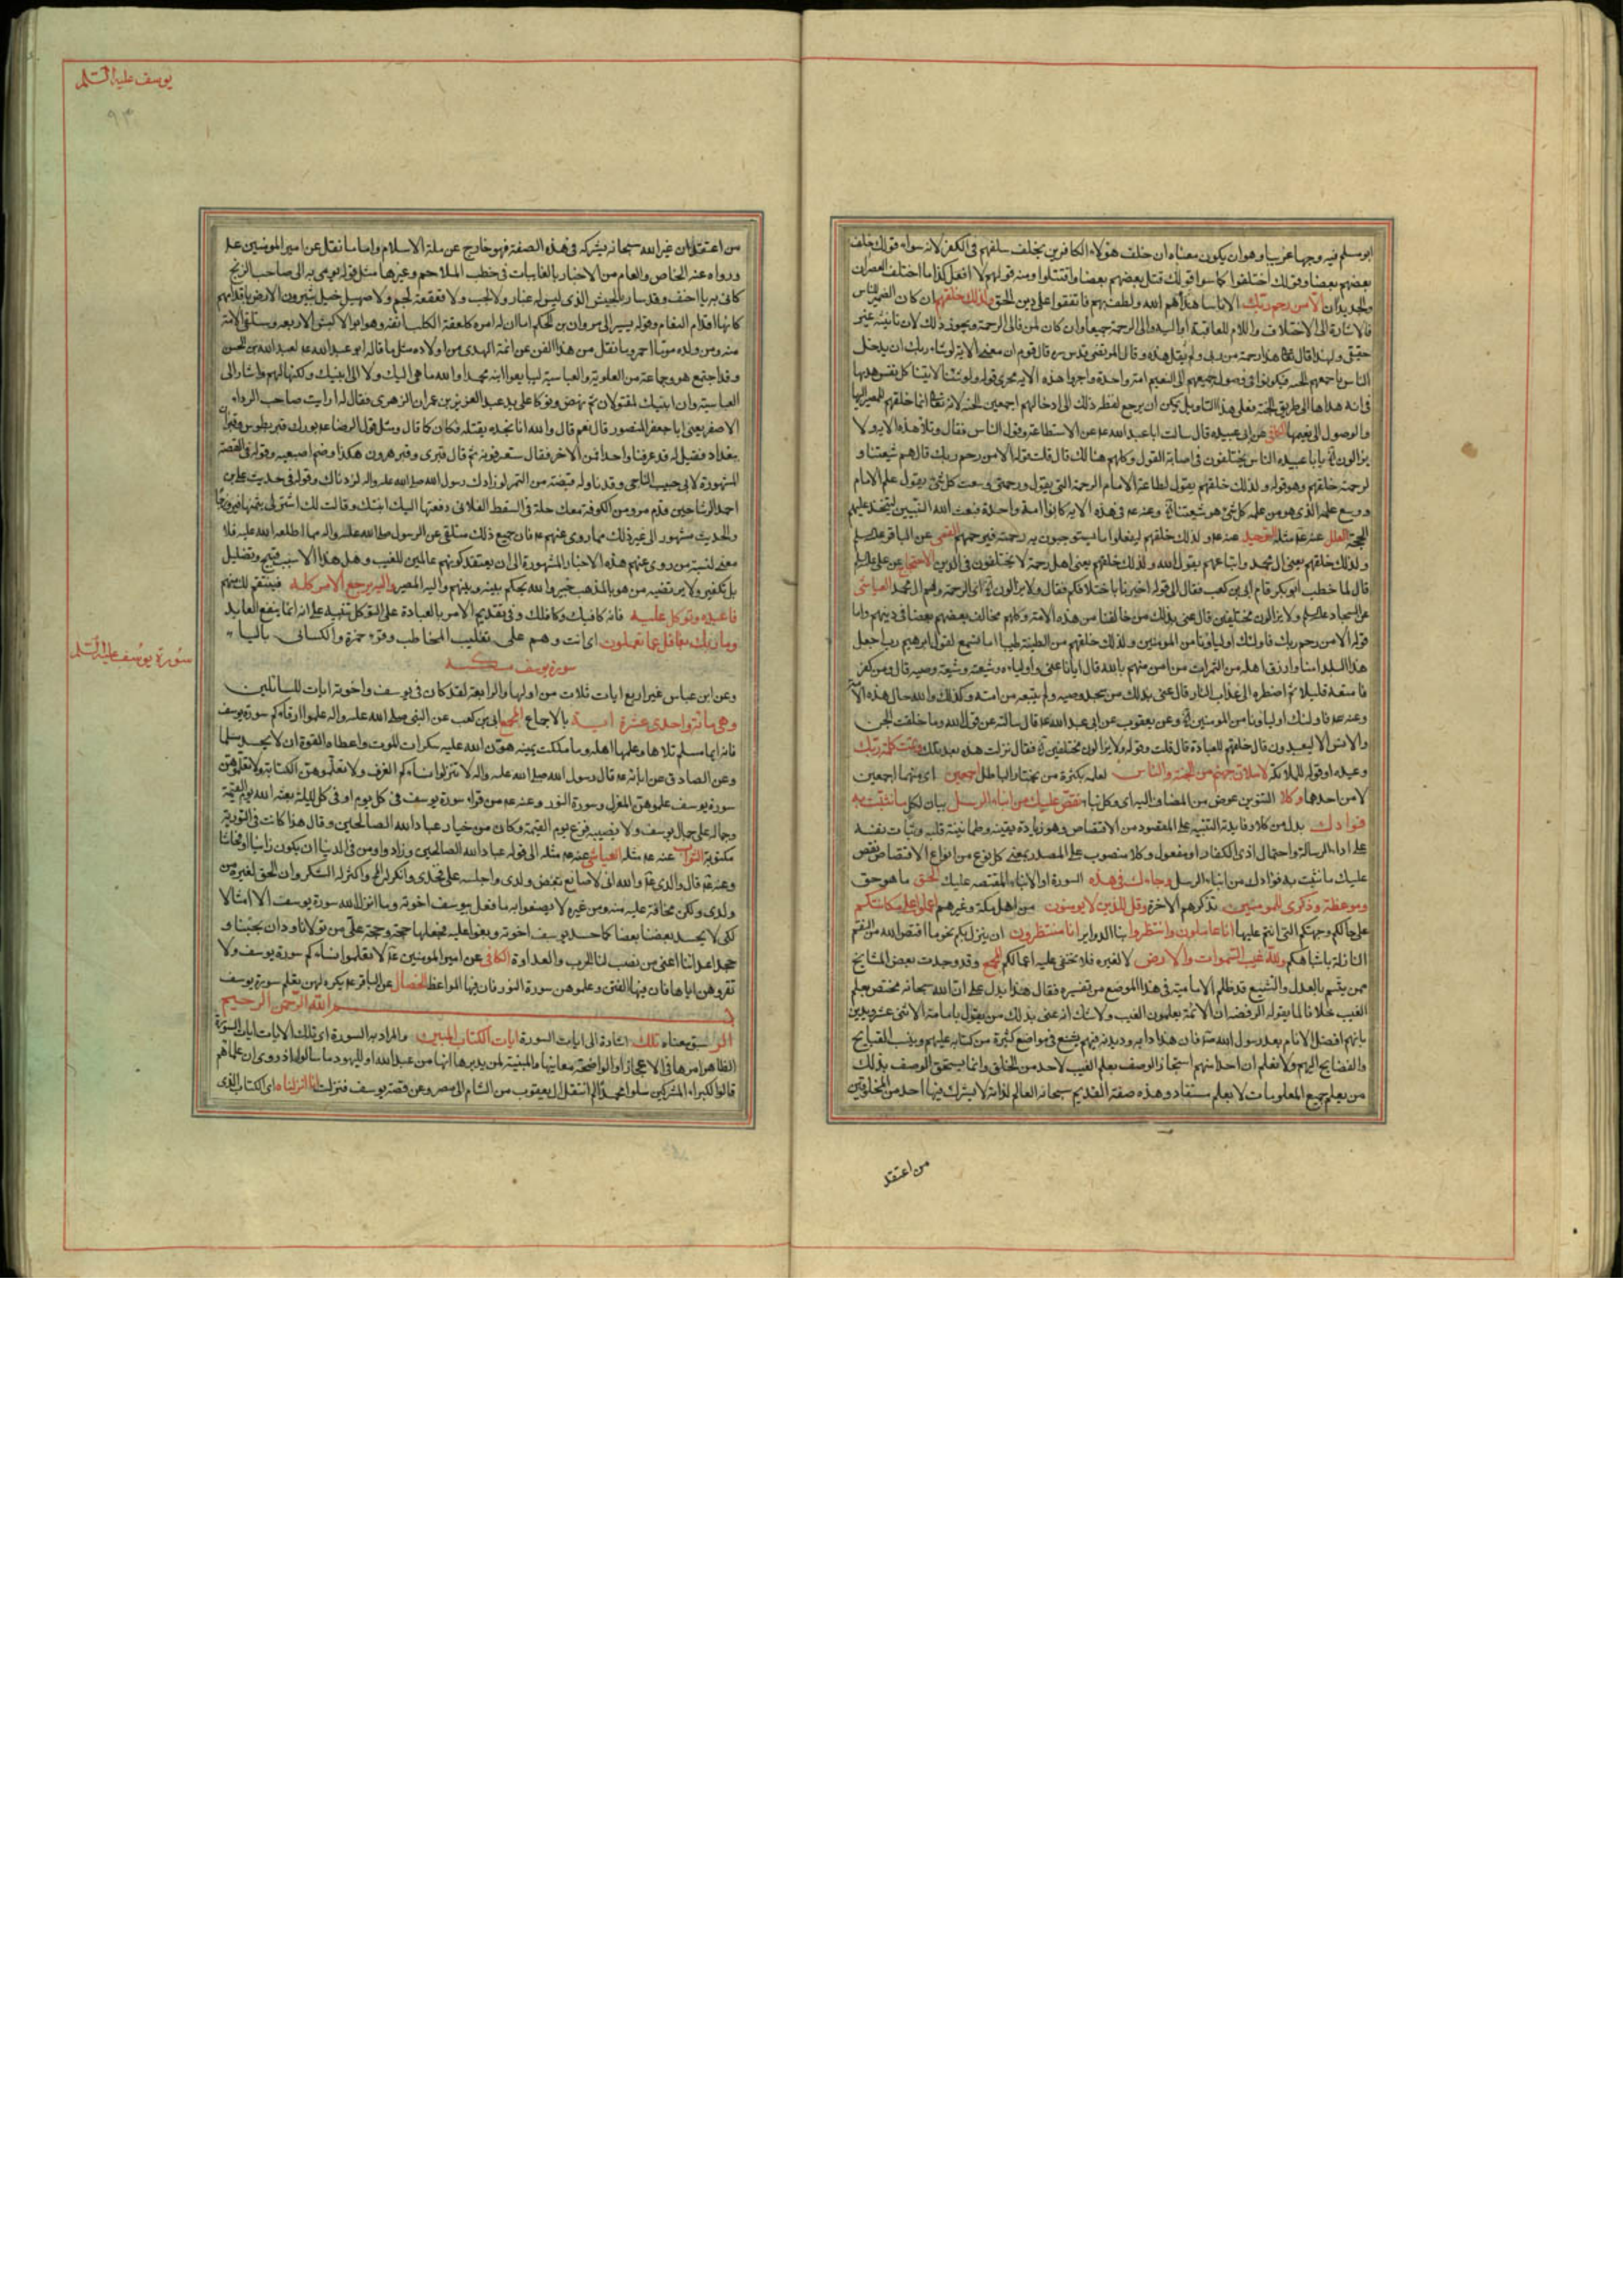 ابو مسلم فيه وجها غريبا وهو ان يكون معناه ان خلف هؤلاء الكافرين يخلف سلفهم في الكفر لانه سواء قولك خلف
بعضهم بعضا وقولك اختلفوا كما سوا قولك قتل بعضهم بعضا واقتتلوا ومنه قولهم لا افعل كذا ما اختلف العصران
والجديدان الا من رحم ربك الا ناسا هداهم الله ولطف بهم فاتفقوا على دين الحق ولذلك خلقهم ان كان الضمير للناس
فالاشارة الى الاختلاف واللام للعاقبة او اليه والى الرحمة جميعا وان كان لمن فالى الرحمة ويجوز ذلك لان تانيثه غير
حقيقي ولهذا قال تعالى هذا رحمة من ربي ولم يقل هذه وقال المرتضى قدس سره قال قوم ان معنى الاية لو شاء ربك ان يدخل
الناس باجمعهم الجنة فيكونوا في وصول جميعهم الى النعيم امة واحدة واجروا هذه الاية مجرى قوله ولو شئنا لاتينا كل نفس هديها
في انه هداها الى طريق الجنة فعلى هذا التاويل يمكن ان يرجع لفظ ذلك الى ادخالهم اجمعين الجنة لانه تعالى انما خلقهم للمصير اليها
والوصول الى نعيمها الكافي عن ابي عبيده قال سالت ابا عبد الله عه عن الاستطاعة وقول الناس فقال وتلا هذه الاية ولا
يزالون يا ابا عبيده الناس مختلفون في اصابة القول وكلهم هالك قال قلت قوله الا من رحم ربك قال هم شيعتنا و
لرحمته خلقهم وهو قوله ولذلك خلقهم يقول لطاعة الامام الرحمة التي يقول ورحمتي وسعت كل شئ يقول علم الامام
ووسع علمه الذي هو من علمه كل شئ هو شيعتنا وعنه عه في هذه الاية كانوا امة واحدة فبعث الله النبيين ليتخذ عليهم
الحجة العلل عنه عه مثله التوحيد عنه عه ولذلك خلقهم ليفعلوا ما يستوجبون به رحمته فيرحمهم القمي عن الباقر
ولذلك خلقهم يعني ال محمد واتباعهم يقول الله ولذلك خلقهم يعني اهل رحمة لا يختلفون في الدين الاحتجاج عن علي
قال لما خطب ابو بكر قام ابي بن كعب فقال الى قوله اخبرنا باختلافكم فقال ولا يزالون اى للرحمة وهم ال محمد العياشي
عن السجاد ولا يزالون مختلفين قال عنى بذلك من خالفنا من هذه الامة وكلهم مخالف بعضهم بعضا في دينهم واما
قوله الا من رحم ربك فاولئك اولياؤنا من المومنين ولذلك خلقهم من الطينة طيبا اما تسمع لقول ابرهيم رب اجعل
هذا البلد امنا وارزق اهله من الثمرات من امن منهم بالله قال ايانا عنى واولياءه وشيعته وشيعة وصيه قال ومن كفر
فامتعه قليلا ثم اضطره الى عذاب النار قال عنى بذلك من جحد وصيه ولم يتبعه من امته وكذلك والله حال هذه الامة
وعنه عه فاولئك اولياؤنا من المومنين وعن يعقوب عن ابي عبد الله عه قال سالته عن قول الله وما خلقت الجن
والانس الا ليعبدون قال خلقهم للعبادة قال قلت وقوله ولا يزالون مختلفين فقال نزلت هذه بعد تلك وتمت كلمة ربك
وعيده او قوله للملائكة لاملان جهنم من الجنة والناس لعلمه بكثرة من يختار الباطل اجمعين اى منهما اجمعين
لا من احدهما وكلا التنوين عوض من المضاف اليه اى وكل نباء نقص عليك من انباء الرسل بيان لكل ما نثبت به
فؤادك بدل من كلا وفايدته التنبيه على المقصود من الاقتصاص وهو زيادة يقينه وطمانينة قلبه وثبات نفسه
على اداء الرسالة واحتمال اذى الكفار او مفعول وكلا منصوب على المصدر بمعنى كل نوع من انواع الاقتصاص نقص
عليك ما نثبت به فؤادك من انباء الرسل وجاءك في هذه السورة او الانباء المقتصه عليك الحق ما هو حق
وموعظة وذكرى للمومنين تذكرهم الاخرة وقل للذين لا يومنون من اهل مكة وغيرهم اعملوا على مكانتكم
على حالكم وجهتكم التي انتم عليها انا عاملون وانتظروا بنا الدواير انا منتظرون ان ينزل بكم نحو ما اقتص الله من النقم
النازلة باشباهكم ولله غيب السموات والارض لا لغيره فلا يخفى عليه اعمالكم المجمع وقد وجدت بعض المشايخ
ممن يتسم بالعدل والتشيع قد ظلم الامامية في هذا الموضع من تفسيره فقال هذا يدل على ان الله سبحانه مختص بعلم
الغيب خلافا لما يقوله الرفضه ان الائمة يعلمون الغيب ولا شك انه عنى بذلك من يقول بامامة الاثنى عشر ويدين
بانهم افضل الانام بعد رسول الله ص فان هذا دابه وديدنه فيهم يشنع في مواضع كثيرة من كتابه عليهم وينسب القبايح
والفضايح اليهم ولا نعلم ان احدا منهم استجاز الوصف بعلم الغيب لاحد من الخلق وانما يستحق الوصف بذلك
من يعلم جميع المعلومات لا بعلم مستفاد وهذه صفة القديم سبحانه العالم لذاته لا يشركه فيها احد من المخلوقين
من اعتقد
يوسف عليه السلم
٩٣
من اعتقد ان غير الله سبحانه يشركه في هذه الصفة فهو خارج عن ملة الاسلام واما ما نقل عن امير المومنين عه
ورواه عنه الخاص والعام من الاخبار بالغايبات في خطب الملاحم وغيرها مثل قوله يومى به الى صاحب الزنج
كاني به يا احنف وقد سار بالجيش الذي ليس له غبار ولا لجب ولا قعقعة لجم ولا صهيل خيل يثيرون الارض باقدامهم
كانها اقدام النعام وقوله يسير الى مروان بن الحكم اما ان له امرة كلعقة الكلب انفه وهو ابو الاكبش الاربعه وستلقى الامة
منه ومن ولده موتا احمر وما نقل من هذا الفن عن ائمة الهدى من اولاده مثل ما قاله ابو عبد الله عه لعبد الله بن الحسن
وقد اجتمع هو وجماعة من العلوية والعباسية ليبايعوا ابنه محمدا والله ما هي اليك ولا الى ابنيك ولكنها لهم واشار الى
العباسية وان ابنيك لمقتولان ثم نهض وتوكا على يد عبد العزيز بن عمران الزهري فقال له ارايت صاحب الرداء
الاصفر يعني ابا جعفر المنصور قال نعم قال والله انا نجده يقتله فكان كما قال ومثل قول الرضا عه بورك قبر بطوس وقبران
ببغداد فقيل له قد عرفنا واحدا فمن الاخر فقال ستعرفونه ثم قال قبري وقبر هرون هكذا وضم اصبعيه وقوله في القصة
المشهورة لابي حبيب النباجي وقد ناوله قبضة من التمر لو زادك رسول الله صلى الله عليه واله لزدناك وقوله في حديث علي بن
احمد الوشا حين قدم مرو من الكوفة معك حلة في السفط الفلاني دفعتها اليك ابنتك وقالت لك اشتر لي بثمنها فيروزجا
والحديث مشهور الى غير ذلك مما روى عنهم عه فان جميع ذلك متلقى عن الرسول صلى الله عليه واله مما اطلعه الله عليه فلا
معنى لنسبة من روى عنهم هذه الاخبار المشهورة الى انه يعتقد كونهم عالمين للغيب وهل هذا الا سب قبيح وتضليل
بل تكفير ولا يرتضيه من هو بالمذهب خبير والله يحكم بينه وبينهم واليه المصير واليه يرجع الامر كله فينتقم لك منهم
فاعبده وتوكل عليه فانه كافيك وكافلك وفي تقديم الامر بالعبادة على التوكل تنبيه على انه انما ينفع العابد
وما ربك بغافل عما تعملون اى انت وهم على تغليب المخاطب وقرء حمزة والكسائي باليا
سورة يوسف مكية
سورة يوسف عليه السلم
وعن ابن عباس غير اربع ايات ثلاث من اولها والرابعة لقد كان في يوسف واخوته ايات للسائلين
وهي مائة واحدى عشرة اية بالاجماع المجمع ابي بن كعب عن النبي صلى الله عليه واله علموا ارقاءكم سورة يوسف
فانه ايما مسلم تلاها وعلمها اهله وما ملكت يمينه هون الله عليه سكرات الموت واعطاه القوة ان لا يحسد مسلما
وعن الصادق عن ابائه عه قال رسول الله صلى الله عليه واله لا تنزلوا نساءكم الغرف ولا تعلموهن الكتابة ولا تعلموهن
سورة يوسف علموهن المغزل وسورة النور وعنه عه من قراء سورة يوسف في كل يوم او في كل ليلة بعثه الله يوم القيمة
وجماله على جمال يوسف ولا يصيبه فزع يوم القيمة وكان من خيار عباد الله الصالحين وقال هذا كانت في التورية
مكتوبة الثواب عنه عه مثله العياشي عنه عه مثله الى قوله عباد الله الصالحين وزاد واومن في الدنيا ان يكون زانيا او فحاشا
وعنه عه قال والدي عه والله اني لاصانع بعض ولدي واجلسه على فخذي وانكز له المخ واكثر له الشكر وان الحق لغيره من
ولدي ولكن مخافة عليه منه ومن غيره لا يصنعوا به ما فعل بيوسف اخوته وما انزل الله سورة يوسف الا امثالا
لكي لا يحسد بعضنا بعضا كما حسد يوسف اخوته وبغوا عليه فجعلها حجة وحجة على من تولانا ودان بحبنا و
جحد اعداءنا اعنى من نصب لنا الحرب والعداوة الكافي عن امير المومنين عه لا تعلموا نساءكم سورة يوسف ولا
تقروهن اياها فان فيها الفتن وعلموهن سورة النور فان فيها المواعظ الخصال عن الباقر عه يكره لهن تعلم سورة يوسف
بسم الله الرحمن الرحيم
الر سبق معناه تلك اشارة الى ايات السورة ايات الكتاب المبين والمراد به السورة اى تلك الايات ايات السورة
الظاهر امرها في الاعجاز او الواضحة معانيها والمبينة لمن يدبرها انها من عند الله او لليهود ما سالوا اذ روى ان علماهم
قالوا لكبراء المشركين سلوا محمدا لم انتقل ال يعقوب من الشام الى مصر وعن قصة يوسف فنزلت انا انزلناه اى الكتاب الذي